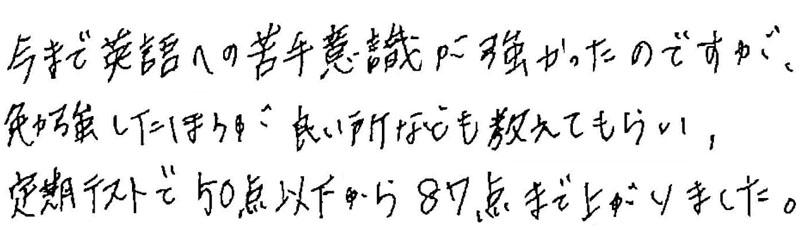 今まで英語への苦手意識が強かったのですが、
勉強したほうが良い所なども教えてもらい,
定期テストで50点以下から87点まで上がりました。